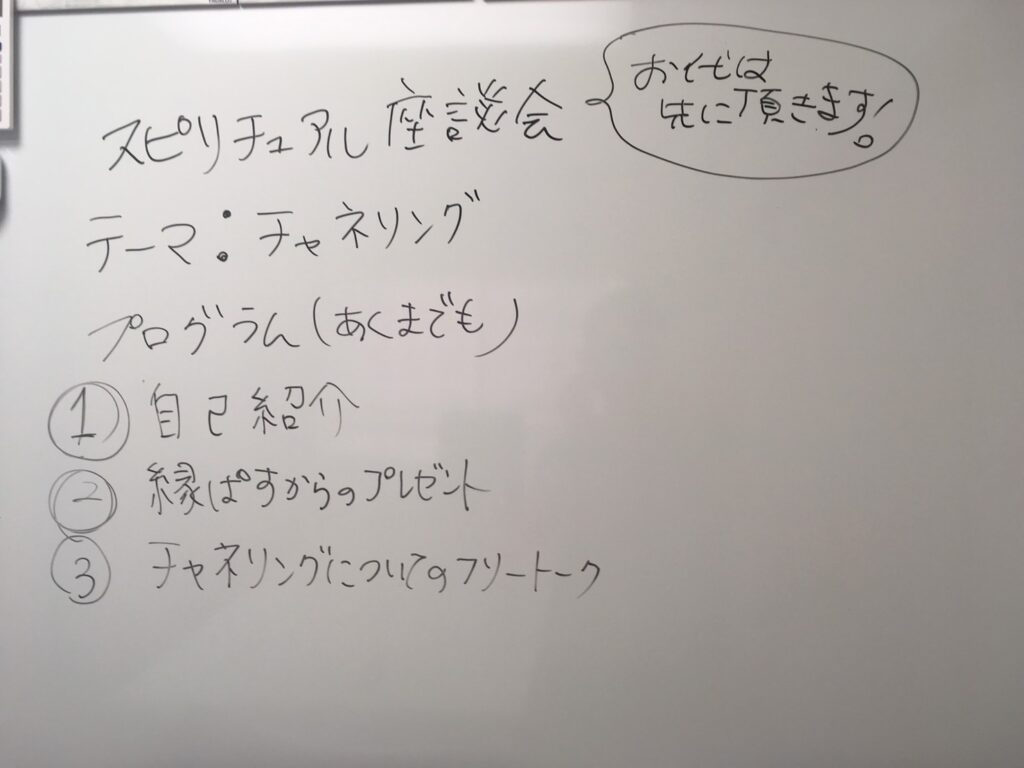 スピリチュアル座談会
お代は
先に頂きます!
テーマ:チャネリング
プログラム(あくまでも)
① 自己紹介
② 縁ぱすからのプレゼント
③ チャネリングについてのフリートーク